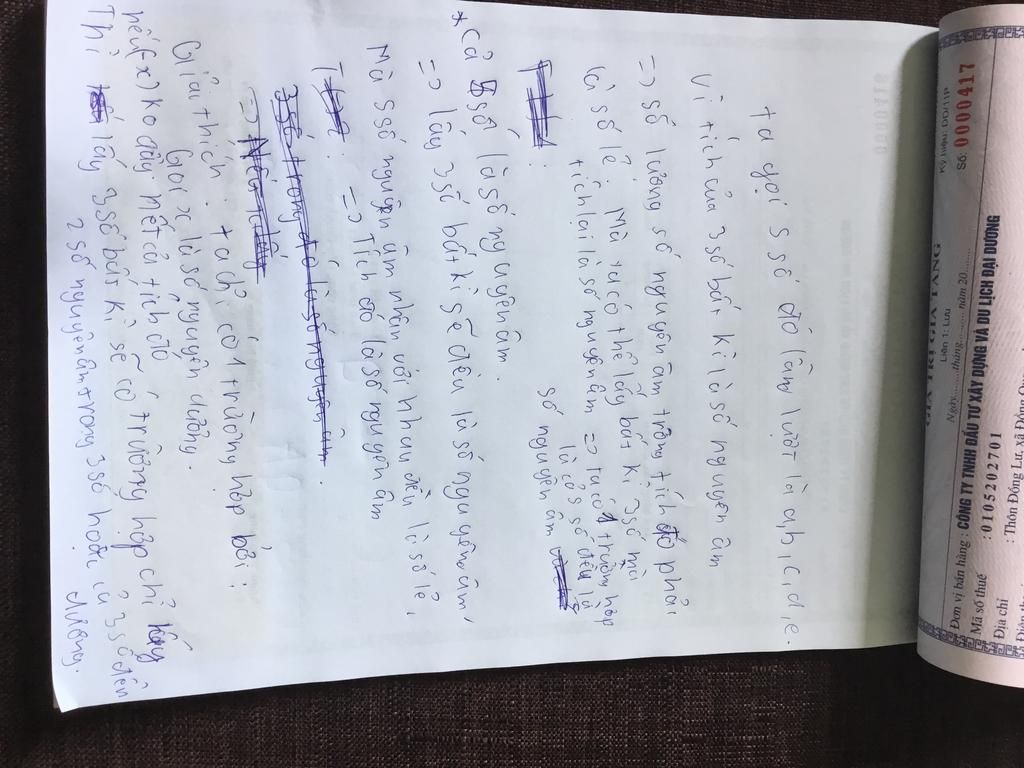 ta gọi 5 số đó lần lượt là a,b,c,d,e.
Vì tích của 3 số bất kì là số nguyên âm
=> số lượng số nguyên âm trong tích đó phải
là số lẻ. Mà ta có thể lấy bất kì 3 số mà
tích lại là số nguyên âm => ta có 1 trường hợp
là cả 5 số đều là
số nguyên âm
* Cả 5 số là số nguyên âm.
=> lấy 3 số bất kì sẽ đều là số nguyên âm,
Mà 5 số nguyên âm nhân với nhau đều là số lẻ,
=> Tích đó là số nguyên âm
3 số trong đó là số nguyên âm
Giải thích: ta chỉ có 1 trường hợp bởi:
Gọi x là số nguyên dương.
nếu (x) ko đầy hết cả tích đó
Thì lấy 3 số bất kì sẽ có trường hợp chỉ
2 số nguyên âm trong 3 số hoặc cả 3 số đều
dương.
GIÁ TRỊ GIA TĂNG
Liên 1: Lưu
Ngày......tháng......năm 20......
Ký hiệu: DD/11P
Số: 0000417
Đơn vị bán hàng : CÔNG TY TNHH ĐẦU TƯ XÂY DỰNG VÀ DU LỊCH ĐẠI DƯƠNG
Mã số thuế : 0105202701
Địa chỉ : Thôn Đồng Lư, xã Đồng